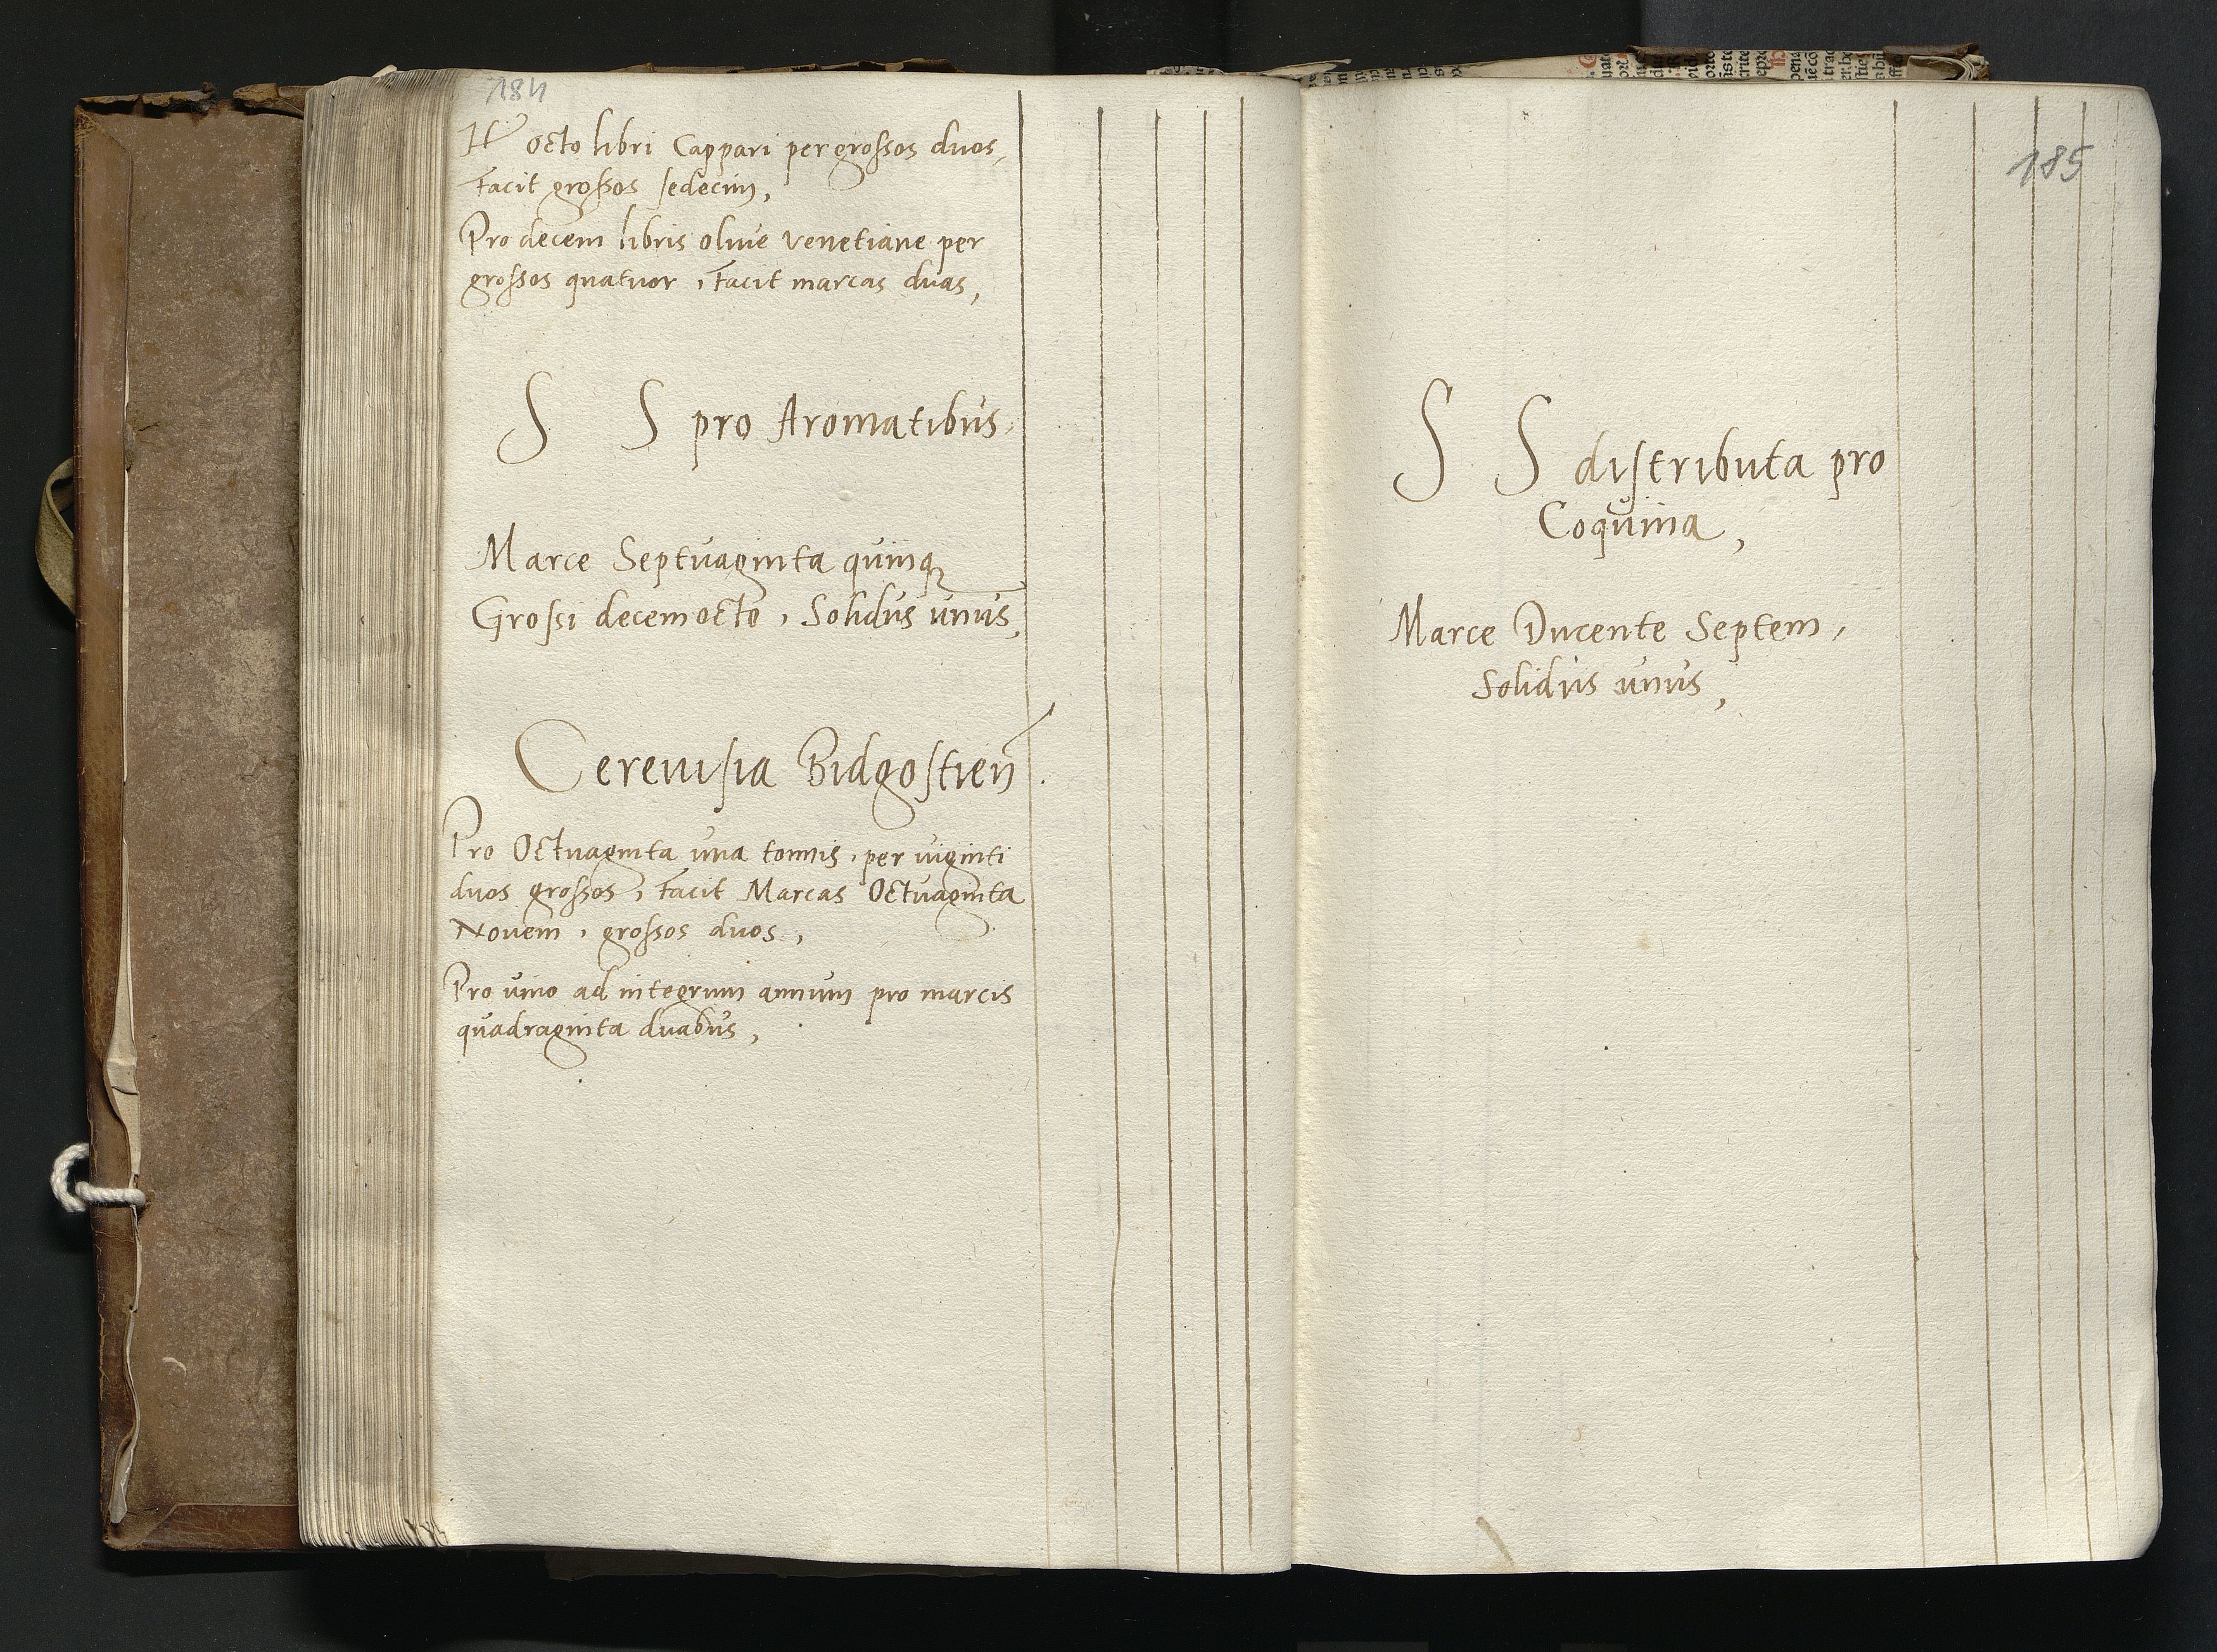 184
It octo libri Cappari per grossos duos,
Facit grossos sedecim,
Pro decem libris oliue venetiane per
grossos quatuor, Facit marcas duas,
S S pro Aromatibus.
Marce Septuaginta quinq
Grossi decemocto, Solidus unus,
Cereuisia Bidgostien.
Pro Octuaginta una tonnis, per uiginti
duos grossos, Facit Marcas Octuaginta
Nouem, grossos duos,
Pro uino ad integrum annum pro marcis
quadraginta duabus,
185
S S distributa pro
Coquina,
Marce Ducente Septem,
Solidus unus,